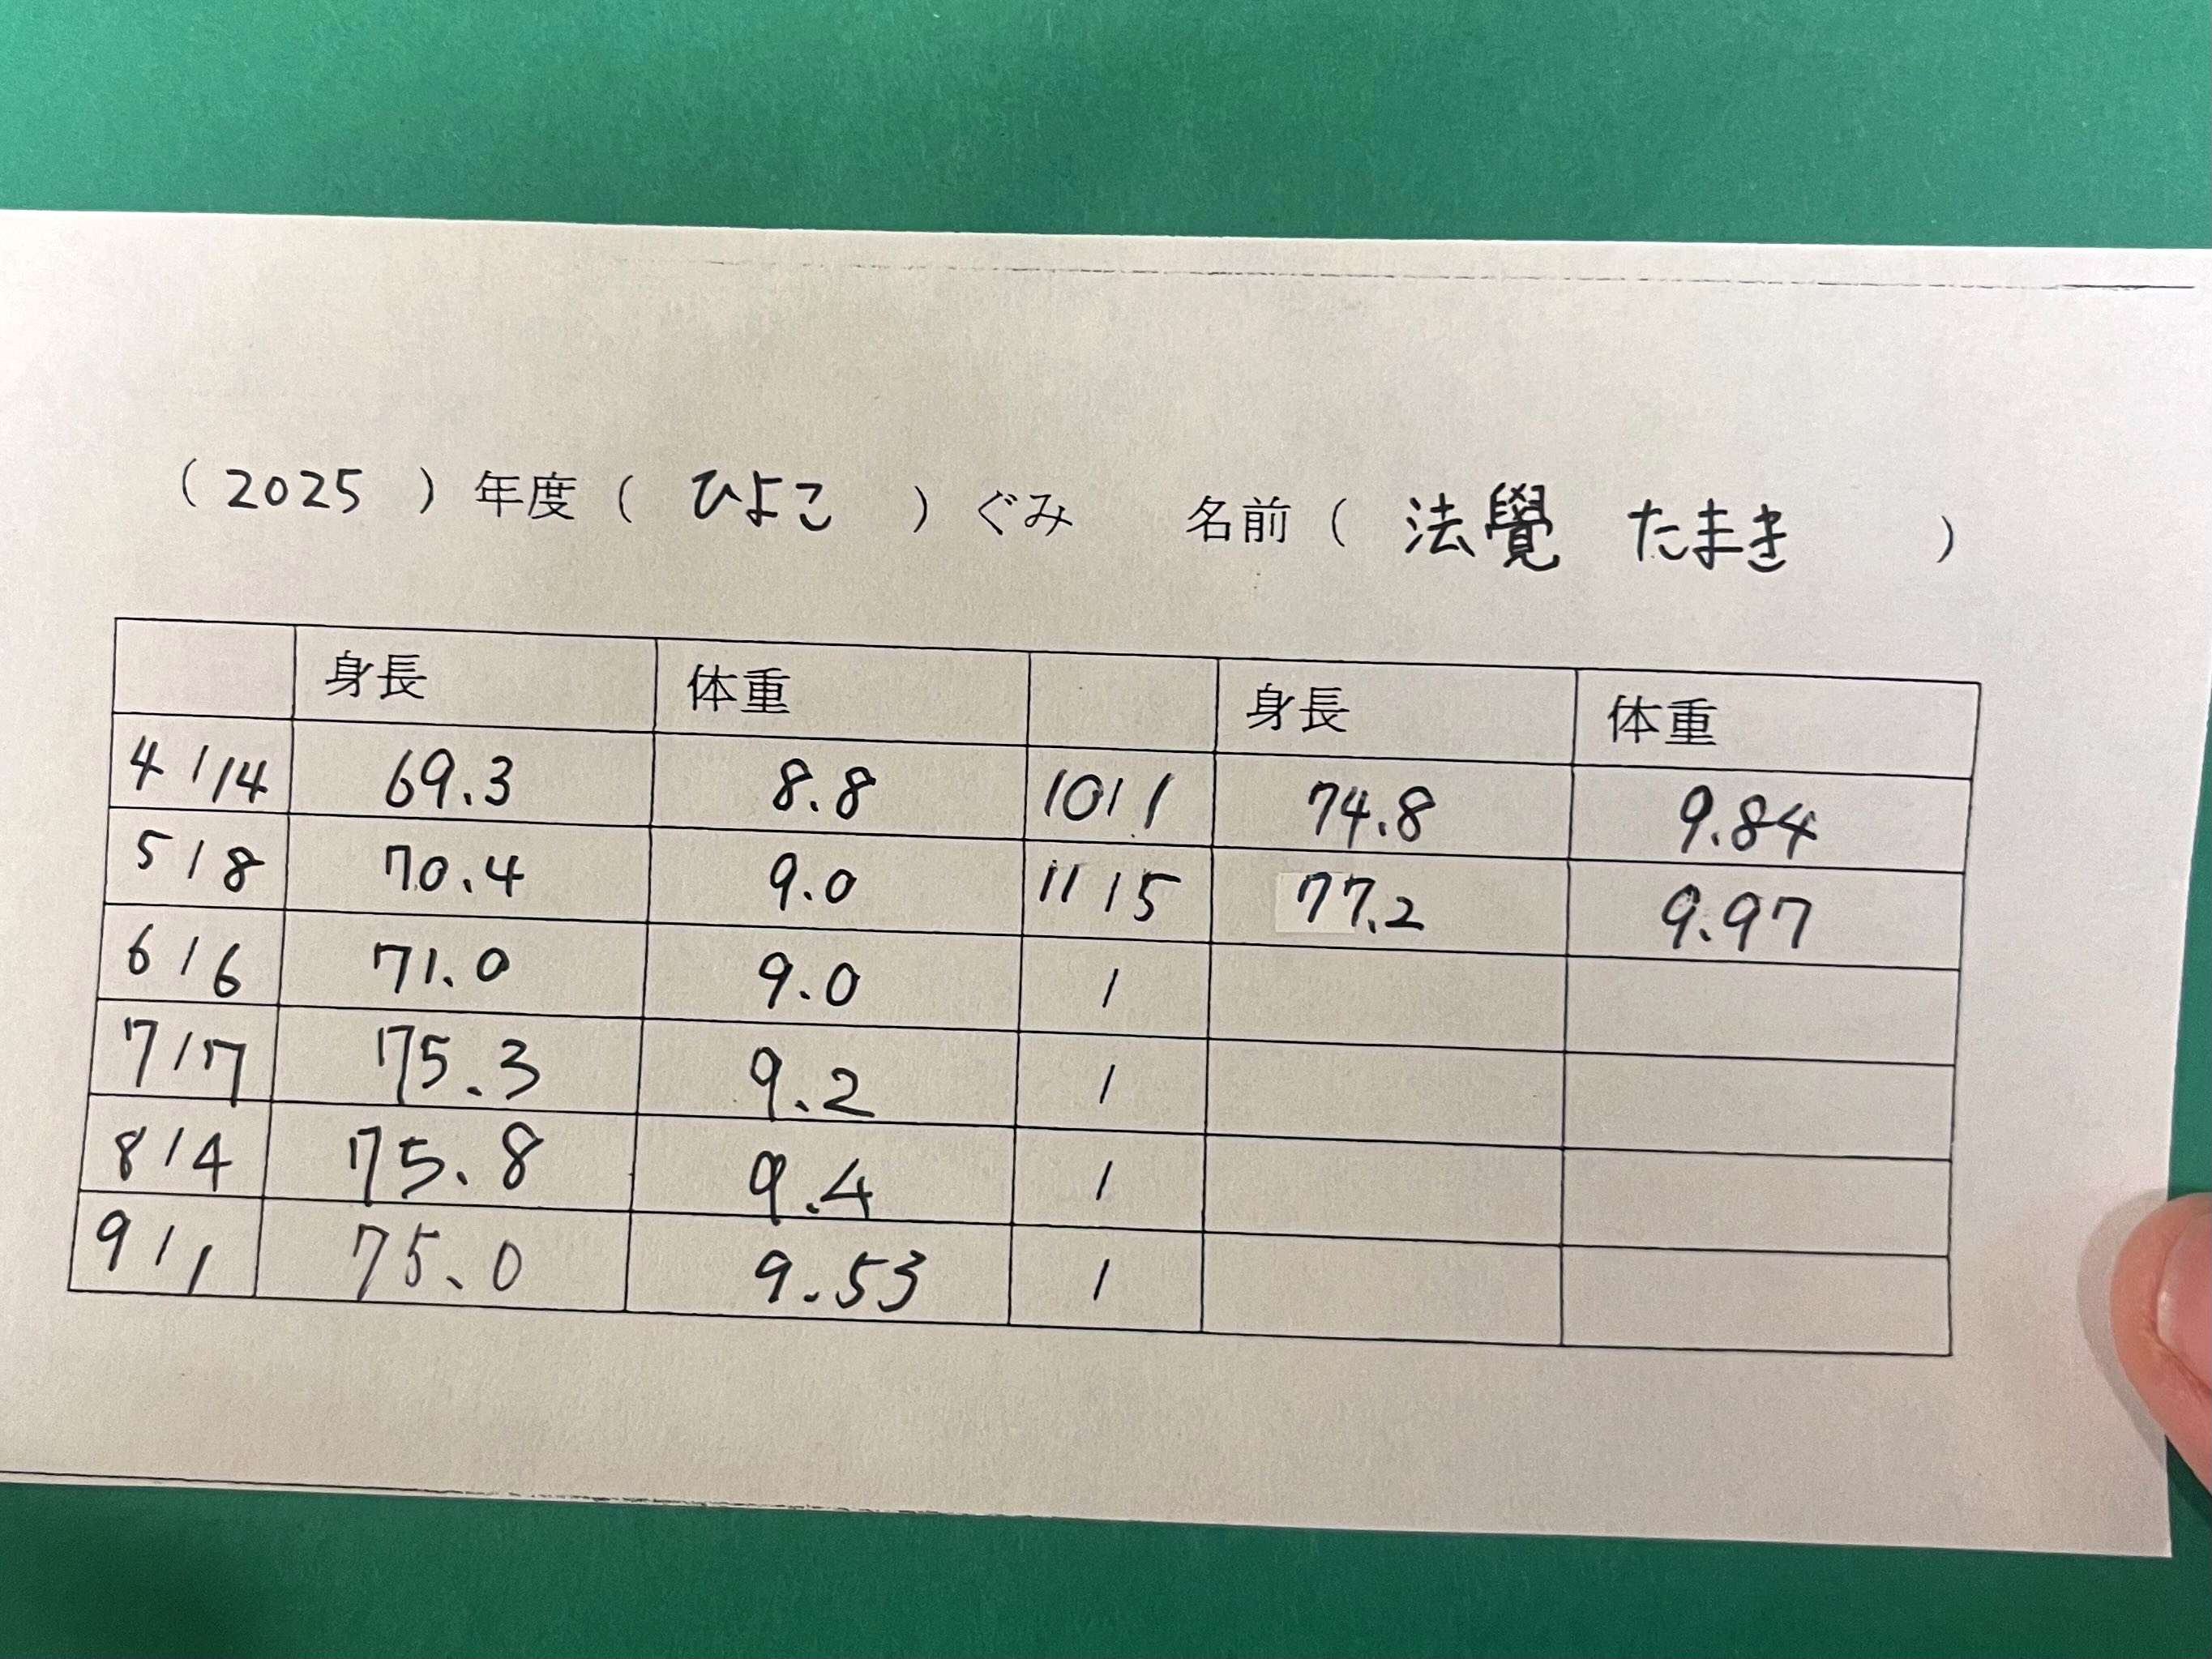 （ 2025 ）年度（ ひよこ ）ぐみ 名前（ 法覺 たまき ）
身長 体重 身長 体重
4/14 69.3 8.8 10/1 74.8 9.84
5/8 70.4 9.0 11/5 77.2 9.97
6/6 71.0 9.0 /
7/7 75.3 9.2 /
8/4 75.8 9.4 /
9/1 75.0 9.53 /